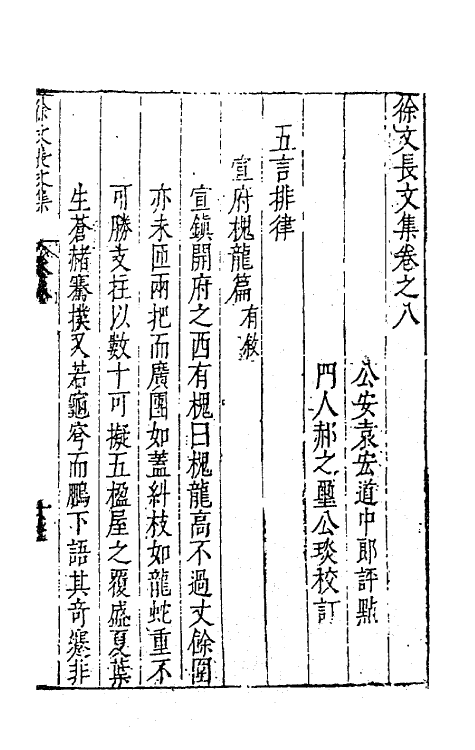 徐文長文集卷之八
公安袁宏道中郎評點
門人郝之璽公琰校訂
五言排律
宣府槐龍篇有敘
宣鎮開府之西有槐曰槐龍高不過丈餘圍
亦未匝兩把而廣團如蓋糾枝如龍蛇重不
可勝支拄以數十可擬五楹屋之覆盛夏葉
生蒼赭騫撲又若龜穹而鵬下語其奇纍非
徐文長文集